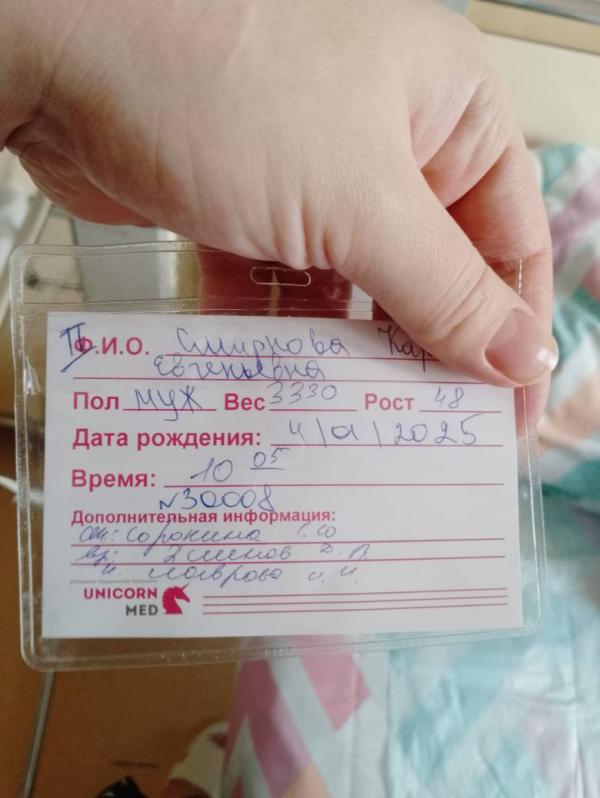 II Ф.И.О. Смирнова Кар
Евгеньевна
Пол муж Вес 3330 Рост 48
Дата рождения: 4/01/2025
Время: 10 05
N30008
Дополнительная информация:
Сорокина
Д. В.
н. Лаврова И. И.
UNICORN
MED